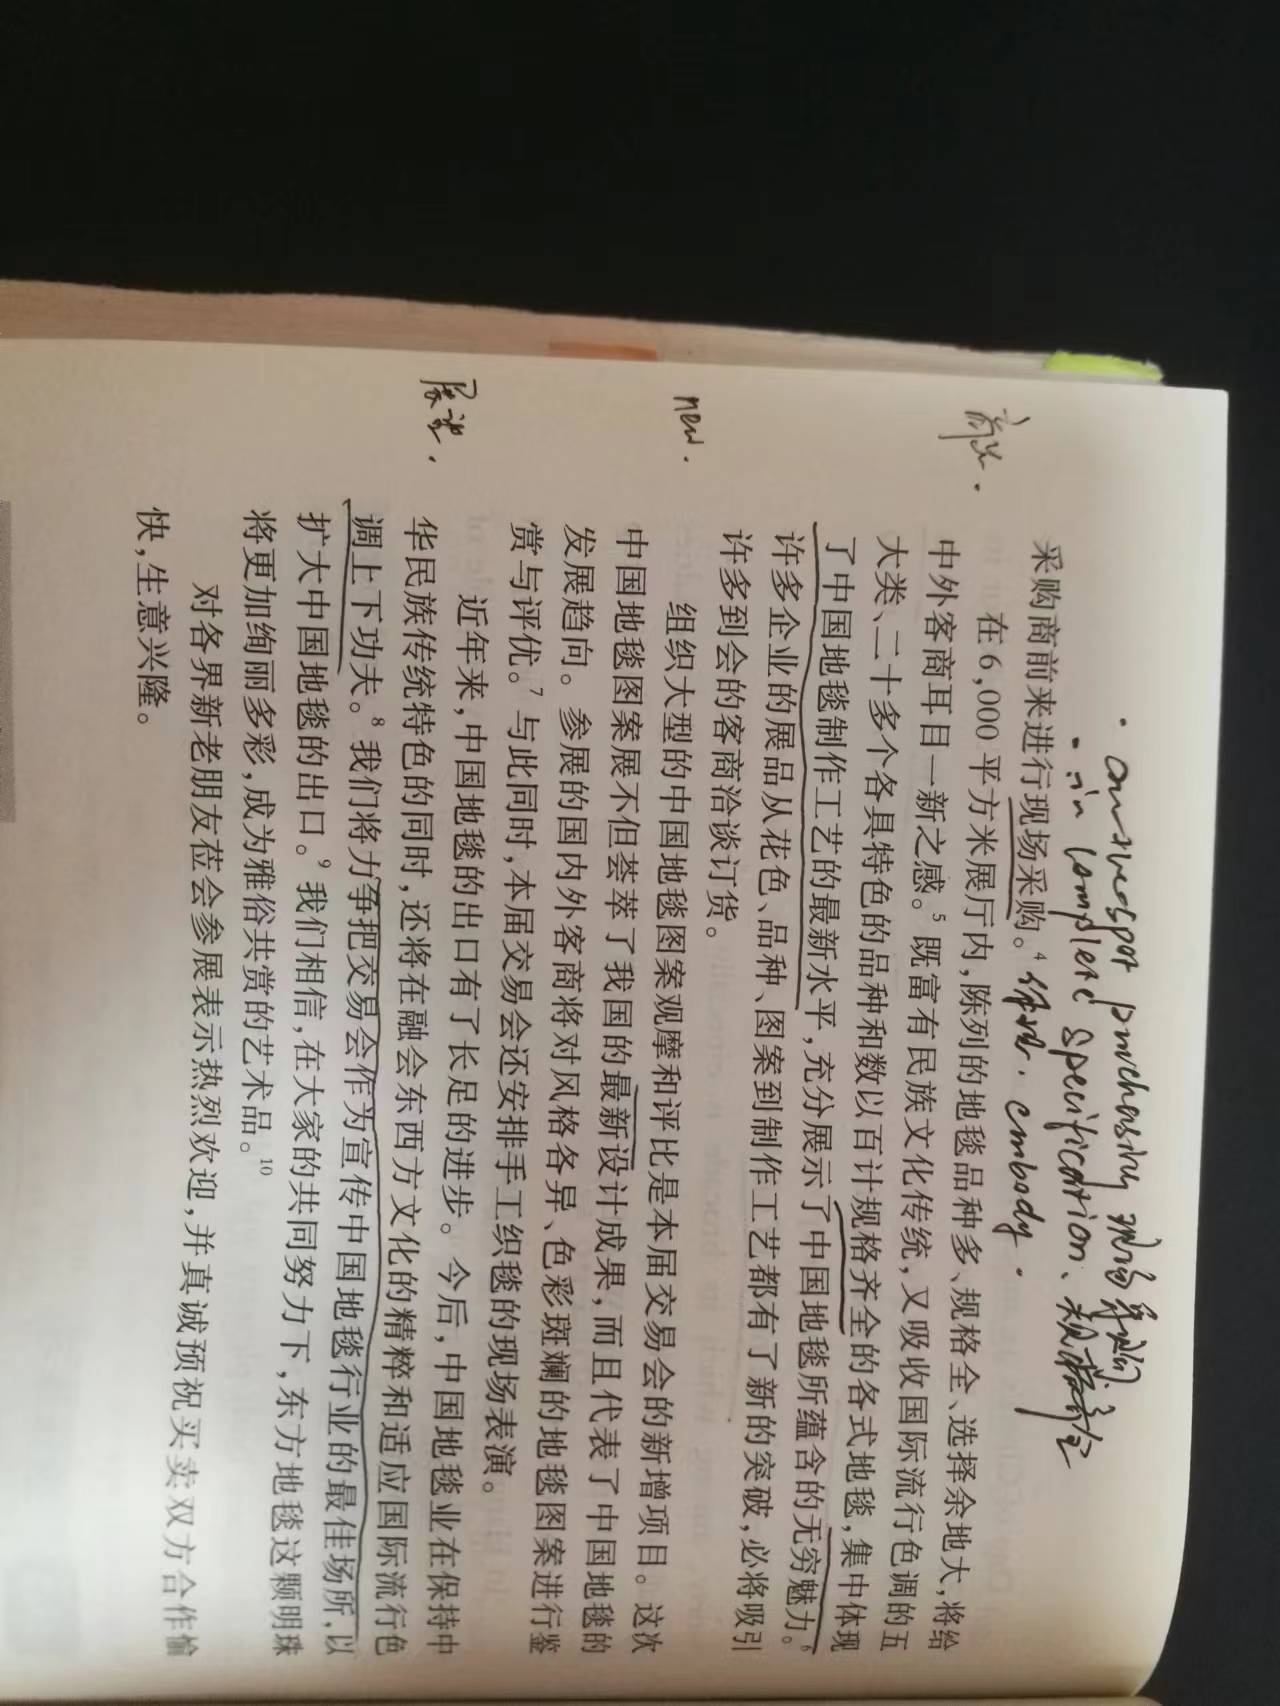 · on-the-spot purchasing 现场采购.
- in complete specification、规格齐全
采购商前来进行现场采购。⁴ 体现. embody.
在6,000平方米展厅内,陈列的地毯品种多、规格全、选择余地大,将给
中外客商耳目一新之感。⁵ 既富有民族文化传统,又吸收国际流行色调的五
大类、二十多个各具特色的品种和数以百计规格齐全的各式地毯,集中体现
了中国地毯制作工艺的最新水平,充分展示了中国地毯所蕴含的无穷魅力。⁶
许多企业的展品从花色、品种、图案到制作工艺都有了新的突破,必将吸引
许多到会的客商洽谈订货。
new.
组织大型的中国地毯图案观摩和评比是本届交易会的新增项目。这次
中国地毯图案展不但荟萃了我国的最新设计成果,而且代表了中国地毯的
发展趋向。参展的国内外客商将对风格各异、色彩斑斓的地毯图案进行鉴
赏与评优。⁷ 与此同时,本届交易会还安排手工织毯的现场表演。
展望.
近年来,中国地毯的出口有了长足的进步。今后,中国地毯业在保持中
华民族传统特色的同时,还将在融会东西方文化的精粹和适应国际流行色
调上下功夫。⁸ 我们将力争把交易会作为宣传中国地毯行业的最佳场所,以
扩大中国地毯的出口。⁹ 我们相信,在大家的共同努力下,东方地毯这颗明珠
将更加绚丽多彩,成为雅俗共赏的艺术品。¹⁰
对各界新老朋友莅会参展表示热烈欢迎,并真诚预祝买卖双方合作愉
快,生意兴隆。